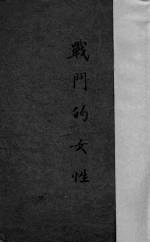 戰鬥的女性